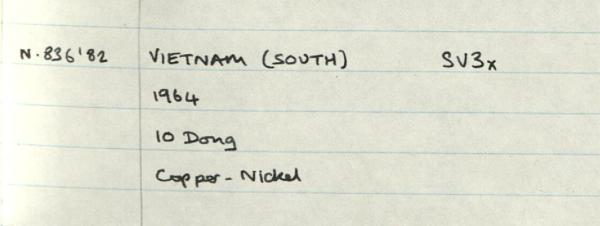 N.836'82 VIETNAM (SOUTH) SV3x
1964
10 Dong
Copper-Nickel